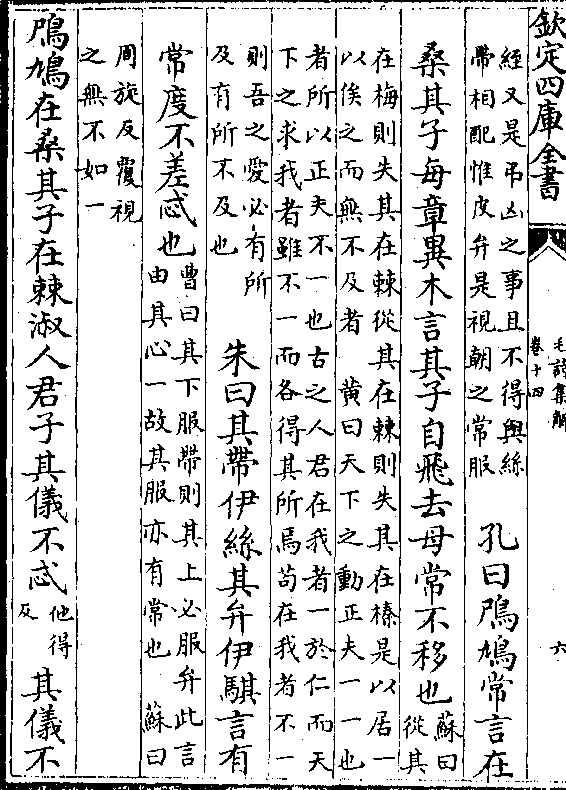 欽定四庫全書
毛詩集解
卷十四
六
經又是弔凶之事且不得與絲
帶相配惟皮弁是視朝之常服
孔曰鳲鳩常言在
桑其子每章異木言其子自飛去母常不移也
蘇曰
從其
在梅則失其在棘從其在棘則失其在榛是以居一
以俟之而無不及者　黄曰天下之動正夫一一也
者所以正夫不一也古之人君在我者一於仁而天
下之求我者雖不一而各得其所焉苟在我者不一
則吾之愛必有所
及有所不及也
朱曰其帶伊絲其弁伊騏言有
常度不差忒也
曹曰其下服帶則其上必服弁此言
由其心一故其服亦有常也　蘇曰
周旋反覆視
之無不如一
鳲鳩在桑其子在棘淑人君子其儀不忒
他得
反
其儀不